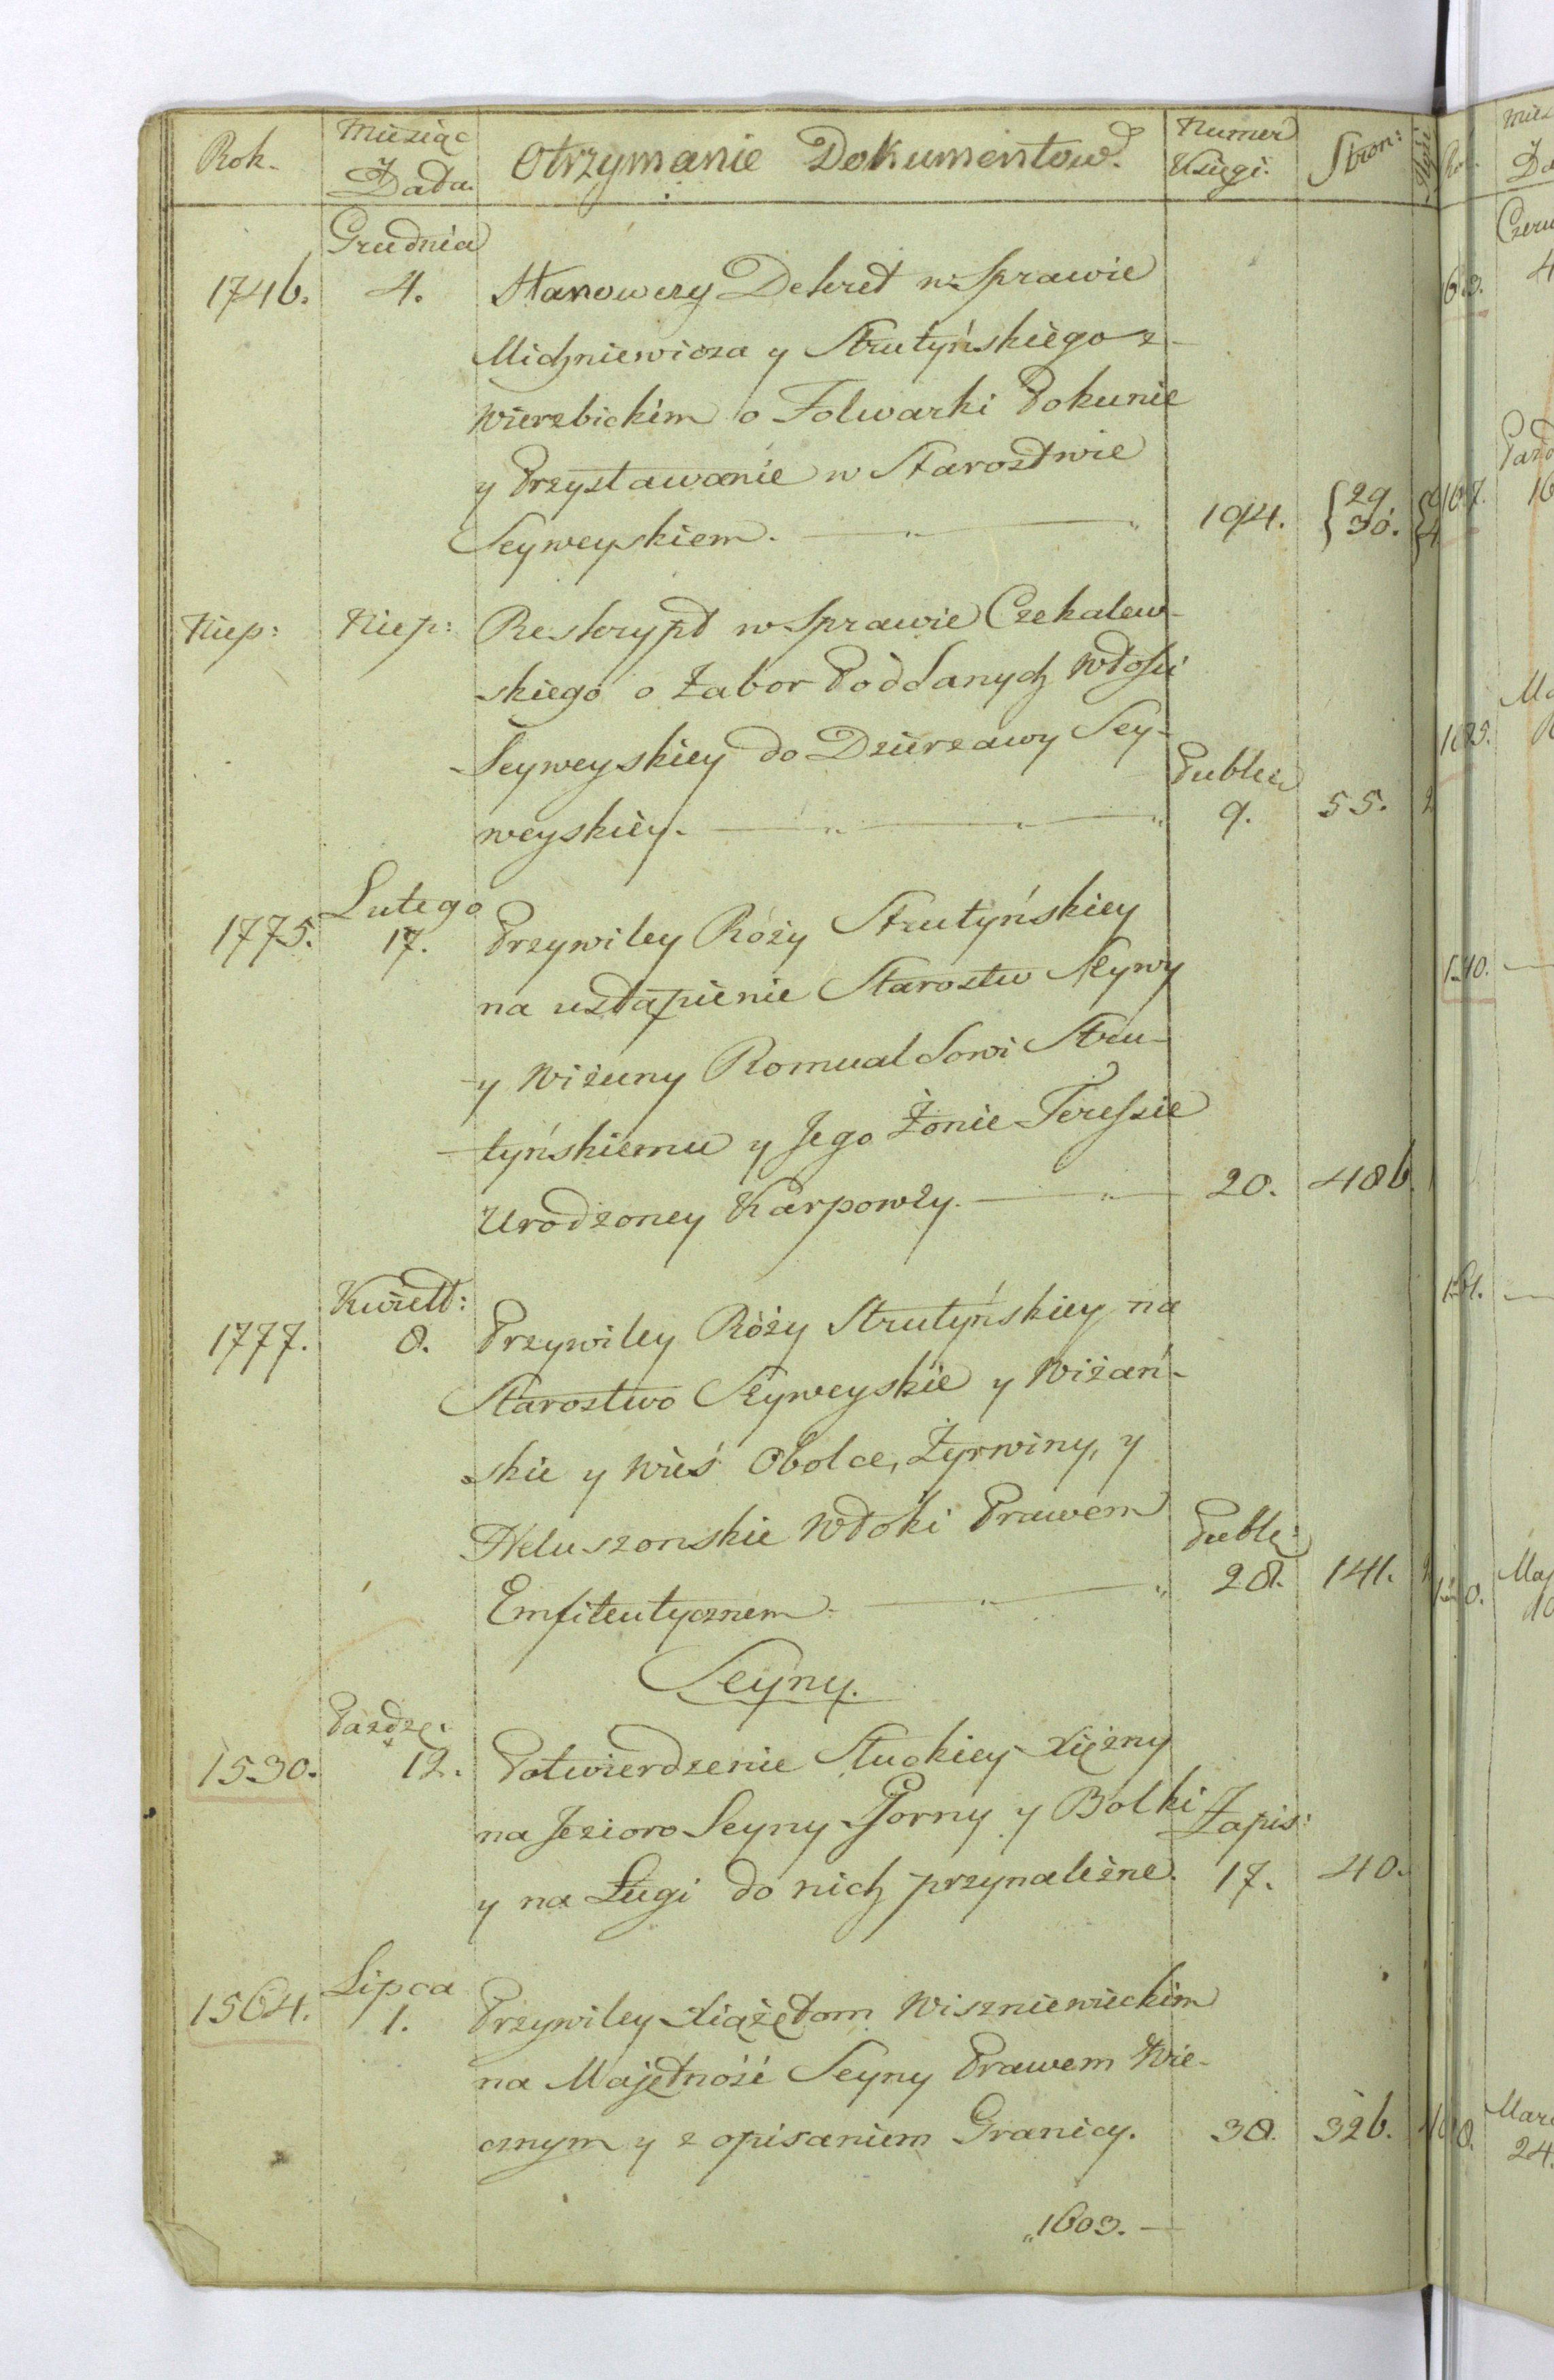 Rok. Miesiąc Data. Otrzymanie Dokumentow. Numer Księgi. Stron:
Grudnia
1746. 4. Stanowczy Dekret w Sprawie
Michniewicza y Strutyńskiego z
Wierzbickim o Folwarki Pokunie
y Przystawanie w Starostwie
Seyweyskiem. 194. {29. 30.
Niep: Niep: Reskrypt w Sprawie Czekalew-
skiego o Zabor Poddanych Włości
Seyweyskiey do Dzierzawy Sey-
weyskiey. Publi: 9. 55.
Lutego
1775. 17. Przywiley Róży Strutyńskiey
na ustąpienie Starostw Seywy
y Wiżuny Romualdowi Stru-
tyńskiemu y Jego Żonie Teressie
Urodzoney Karpowny. 20. 486.
Kwiet:
1777. 8. Przywiley Róży Strutyńskiey na
Starostwo Seyweyskie y Wiżań-
skie y Wieś Obolce, Żyrwiny, y
Włoki Prawem
Emfiteutycznem. Publi: 28. 141.
Seyny.
Pazdz:
1530. 12. Potwierdzenie Słuckiey Xiężny
na Jezioro Seyny Gorny y Bolki Zapis:
y na Ługi do nich przynależne. 17. 40.
Lipca
1564. 1. Przywiley Xiążętom Wiszniewieckim
na Majętność Seyny Prawem Wie-
cznym y z opisaniem Granicy. 38. 326.
„1603. —